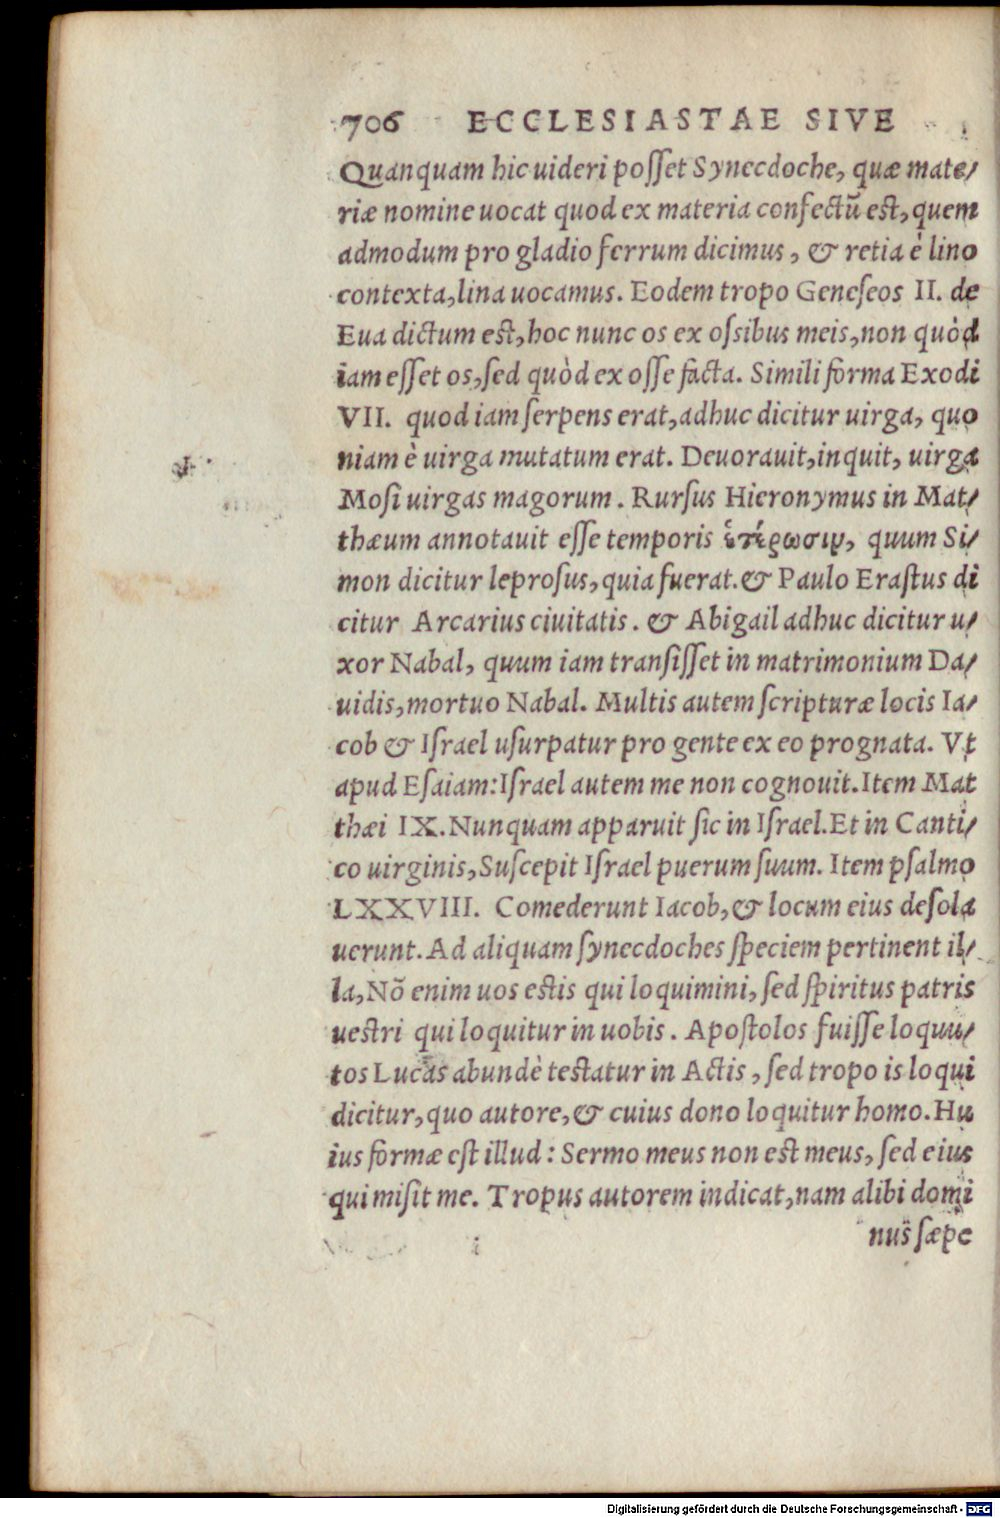 706 ECCLESIASTAE SIVE
Quanquam hic uideri posset Synecdoche, quæ mate/
riæ nomine uocat quod ex materia confectũ est, quem
admodum pro gladio ferrum dicimus, & retia è lino
contexta, lina uocamus. Eodem tropo Geneseos II. de
Eua dictum est, hoc nunc os ex ossibus meis, non quòd
iam esset os, sed quòd ex osse facta. Simili forma Exodi
VII. quod iam serpens erat, adhuc dicitur uirga, quo
niam è uirga mutatum erat. Deuorauit, inquit, uirga
Mosi uirgas magorum. Rursus Hieronymus in Mat/
thæum annotauit esse temporis ἑτέρωσιμ, quum Si/
mon dicitur leprosus, quia fuerat. & Paulo Erastus di
citur Arcarius ciuitatis. & Abigail adhuc dicitur u/
xor Nabal, quum iam transisset in matrimonium Da/
uidis, mortuo Nabal. Multis autem scripturæ locis Ia/
cob & Israel usurpatur pro gente ex eo prognata. Vt
apud Esaiam: Israel autem me non cognouit. Item Mat
thæi IX. Nunquam apparuit sic in Israel. Et in Canti/
co uirginis, Suscepit Israel puerum suum. Item psalmo
LXXVIII. Comederunt Iacob, & locum eius desola
uerunt. Ad aliquam synecdoches speciem pertinent il/
la, Nõ enim uos estis qui loquimini, sed spiritus patris
uestri qui loquitur in uobis. Apostolos fuisse loquu/
tos Lucas abundè testatur in Actis, sed tropo is loqui
dicitur, quo autore, & cuius dono loquitur homo. Hu
ius formæ est illud: Sermo meus non est meus, sed eius
qui misit me. Tropus autorem indicat, nam alibi domi
nus sæpe
Digitalisierung gefördert durch die Deutsche Forschungsgemeinschaft - DFG